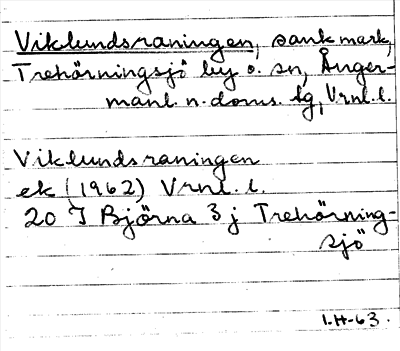 Viklundsraningen, sank mark,
Trehörningsjö by o. sn, Ånger-
manl. n. doms. lg, Vrnl. l.
Viklundsraningen
ek (1962) Vrnl. l.
20 I Björna 3 j Trehörning-
sjö
I.H-63.